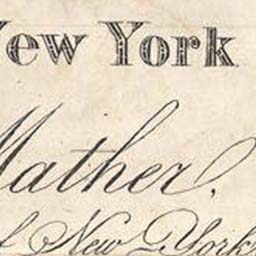 New York
Mather.
of New York